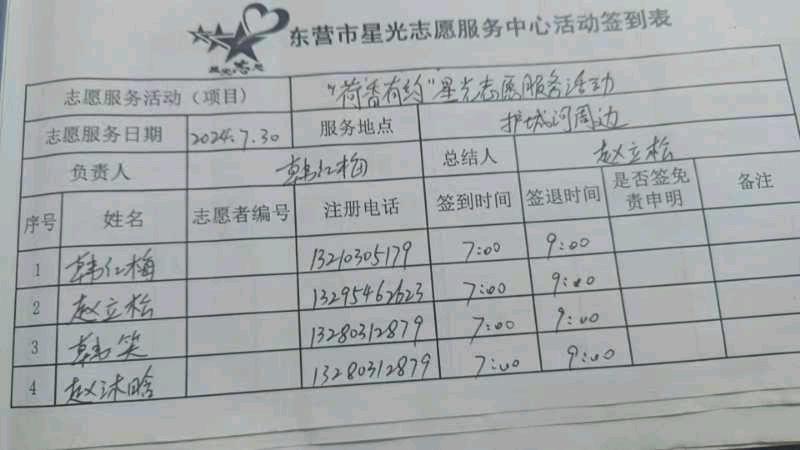 东营市星光志愿服务中心活动签到表
志愿服务活动（项目） “荷香有约”星光志愿服务活动
志愿服务日期 2024.7.30 服务地点 护城河周边
负责人 韩红梅 总结人 赵立松
序号 姓名 志愿者编号 注册电话 签到时间 签退时间 是否签免责申明 备注
1 韩红梅 13210305179 7:00 9:00
2 赵立松 13295462623 7:00 9:00
3 韩笑 13280312879 7:00 9:00
4 赵沐晗 13280312879 7:00 9:00